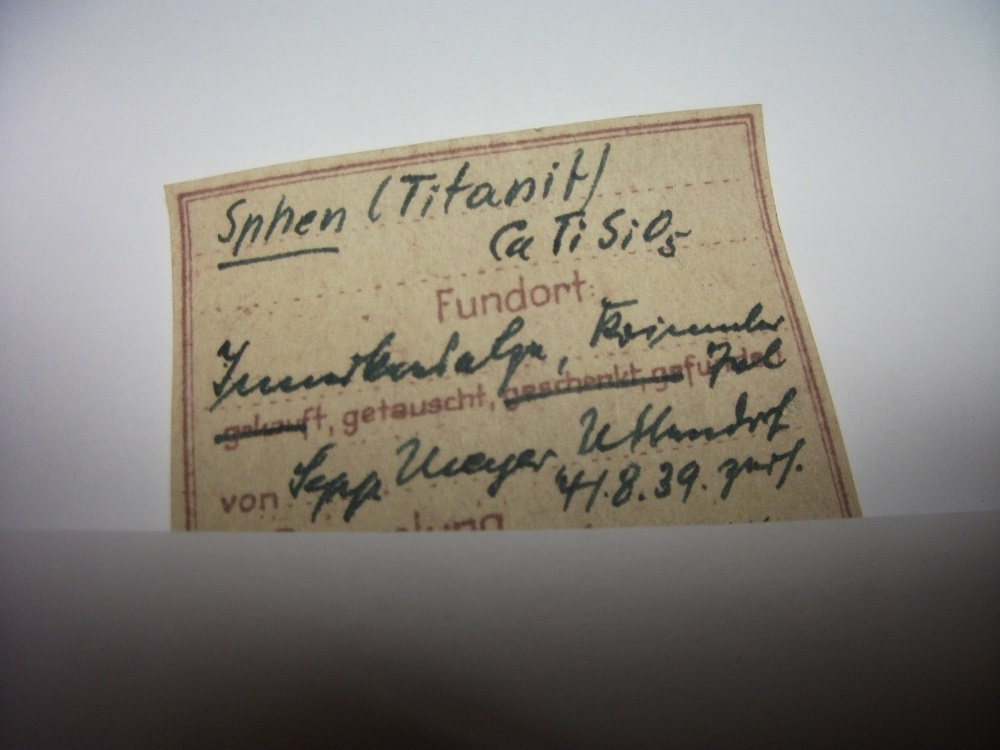 Sphen (Titanit)
Ca Ti SiO5
Fundort:
Krimmler
gekauft, getauscht, geschenkt gefunden Tal
von Sepp Meyer Uttendorf
41.8.39.